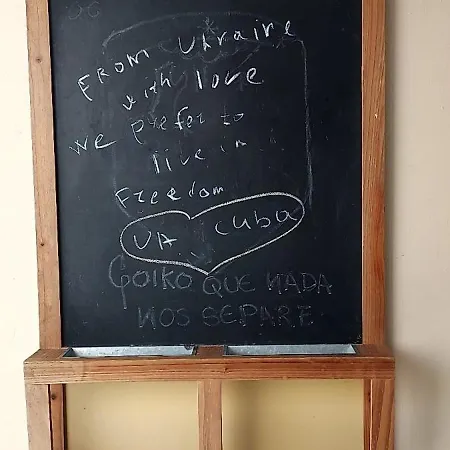 FROM Ukraine
with love
we prefer to
live in
Freedom
UA Cuba
Goiko QUE NADA
NOS SEPARE